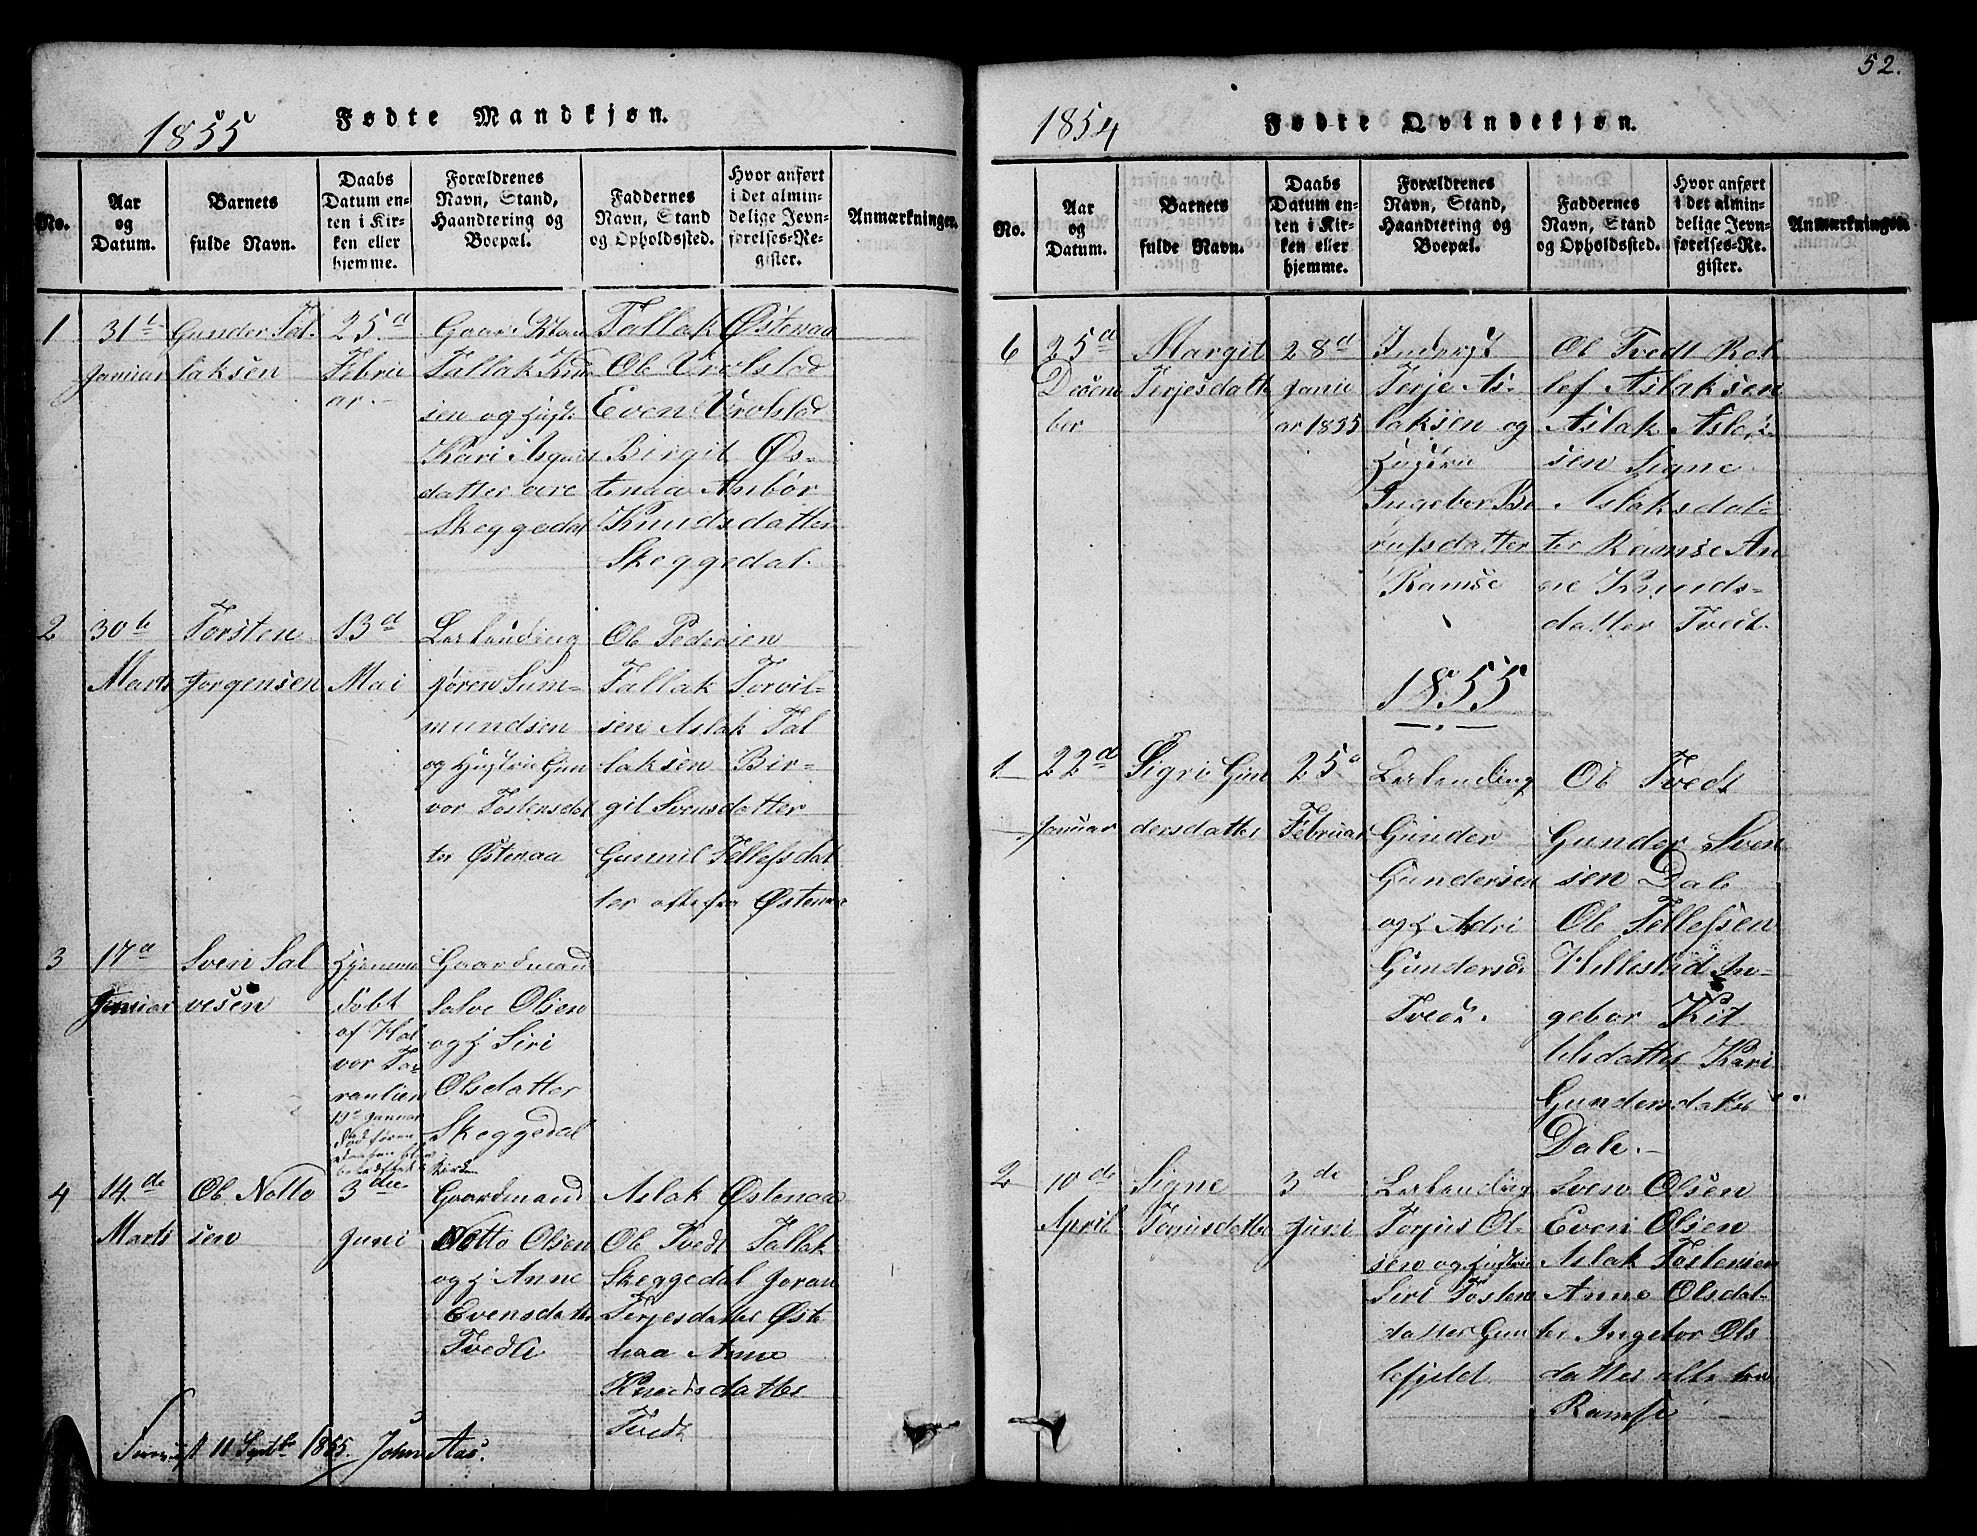 1855
Fødte Mandkjøn.
No.
Aar
og
Datum.
Barnets
fulde Navn.
Daabs
Datum en-
ten i Kir-
ken eller
hjemme.
Forældrenes
Navn, Stand,
Haandtering og
Boepæl.
Faddernes
Navn, Stand
og Opholdssted.
Hvor anført
i det almin-
delige Jevn-
førelses-Re-
gister.
Anmærkninger.
1
31te
Januar
Gunder Tal-
laksen
25d
Februar
ar.
Tallak Knu
sen og Hust
Kari Asgus
datter øvre
Skeggedal
Tallak Østenaa
Ob Vrolstad
Even Vrolstad
Birgit Øs-
tenaa Anbør
Knudsdatter
Skeggedal.
2
30te
Marts
Torsten
Jørgensen
13d
Mai
Jøren Sum-
mundsen
og Hustrue Gun
vor Tostensdat
ter Østenaa
Ob Pedersen
Tallak Torvil-
sen Aslak Tal
laksen Bir-
git Svensdatter
Gunnil Tellefsdat
ter Østenaa
3
17d
Januar
Sven Sal
vesen
Hjemme
døbt
af Hal
vor To-
19d Januar
Gaardmand
Salve Olsen
og H Siri
Olsdatter
Skeggedal
4
14de
Marts
Ob Notto
sen
3die
Juni
Gaardmand
Notto Olsen
og H Anne
Evensdatter
Tvedte
Aslak Østenaa
Ob Tvedt Tallak
Skeggedal Joran
Terjesdatter Øste
naa Anne
Knudsdatter
Tvedt
11 Septbr 1855. John Aas.
52.
1854
Fødte Qvindekjøn.
No.
Aar
og
Datum.
Barnets
fulde Navn.
Daabs
Datum en-
ten i Kir-
ken eller
hjemme.
Forældrenes
Navn, Stand,
Haandtering og
Boepæl.
Faddernes
Navn, Stand
og Opholdssted.
Hvor anført
i det almin-
delige Jevn-
førelses-Re-
gister.
Anmærkninger.
6
25d
Decem
ber
Margit
Terjesdatter
28d
Janu
ar 1855
Inderst
Terje As-
laksen og
Hustrue
Ingebor Be
rulfsdatter
Ramse
Ob Tvedt Rol
lef Aslaksen
Aslak Aslak
sen Signe
Aslaksdat-
ter Ramse An
ne Knuds-
datter Tveit.
1855
1
22d
Januar
Sigri Gun
dersdatter
25d
Februar
Gunder
Gundersen
og H Adri
Gundersd
Tvedt.
Ob Tvedt
Gunder Sven
sen Dale
Ob Tellefsen
Hillestad In-
gebor Kit
telsdatter Kari
Gundersdatter
Dale.
2
10de
April
Signe
3de
Juni
Torjus Ol-
sen og Hustrue
Siri Tosten
datter Gun
lefjeld
Sven Olsen
Even Olsen
Aslak Tostensen
Anne Olsdat-
ter Ingebor Ols
datter alle fra
Ramse